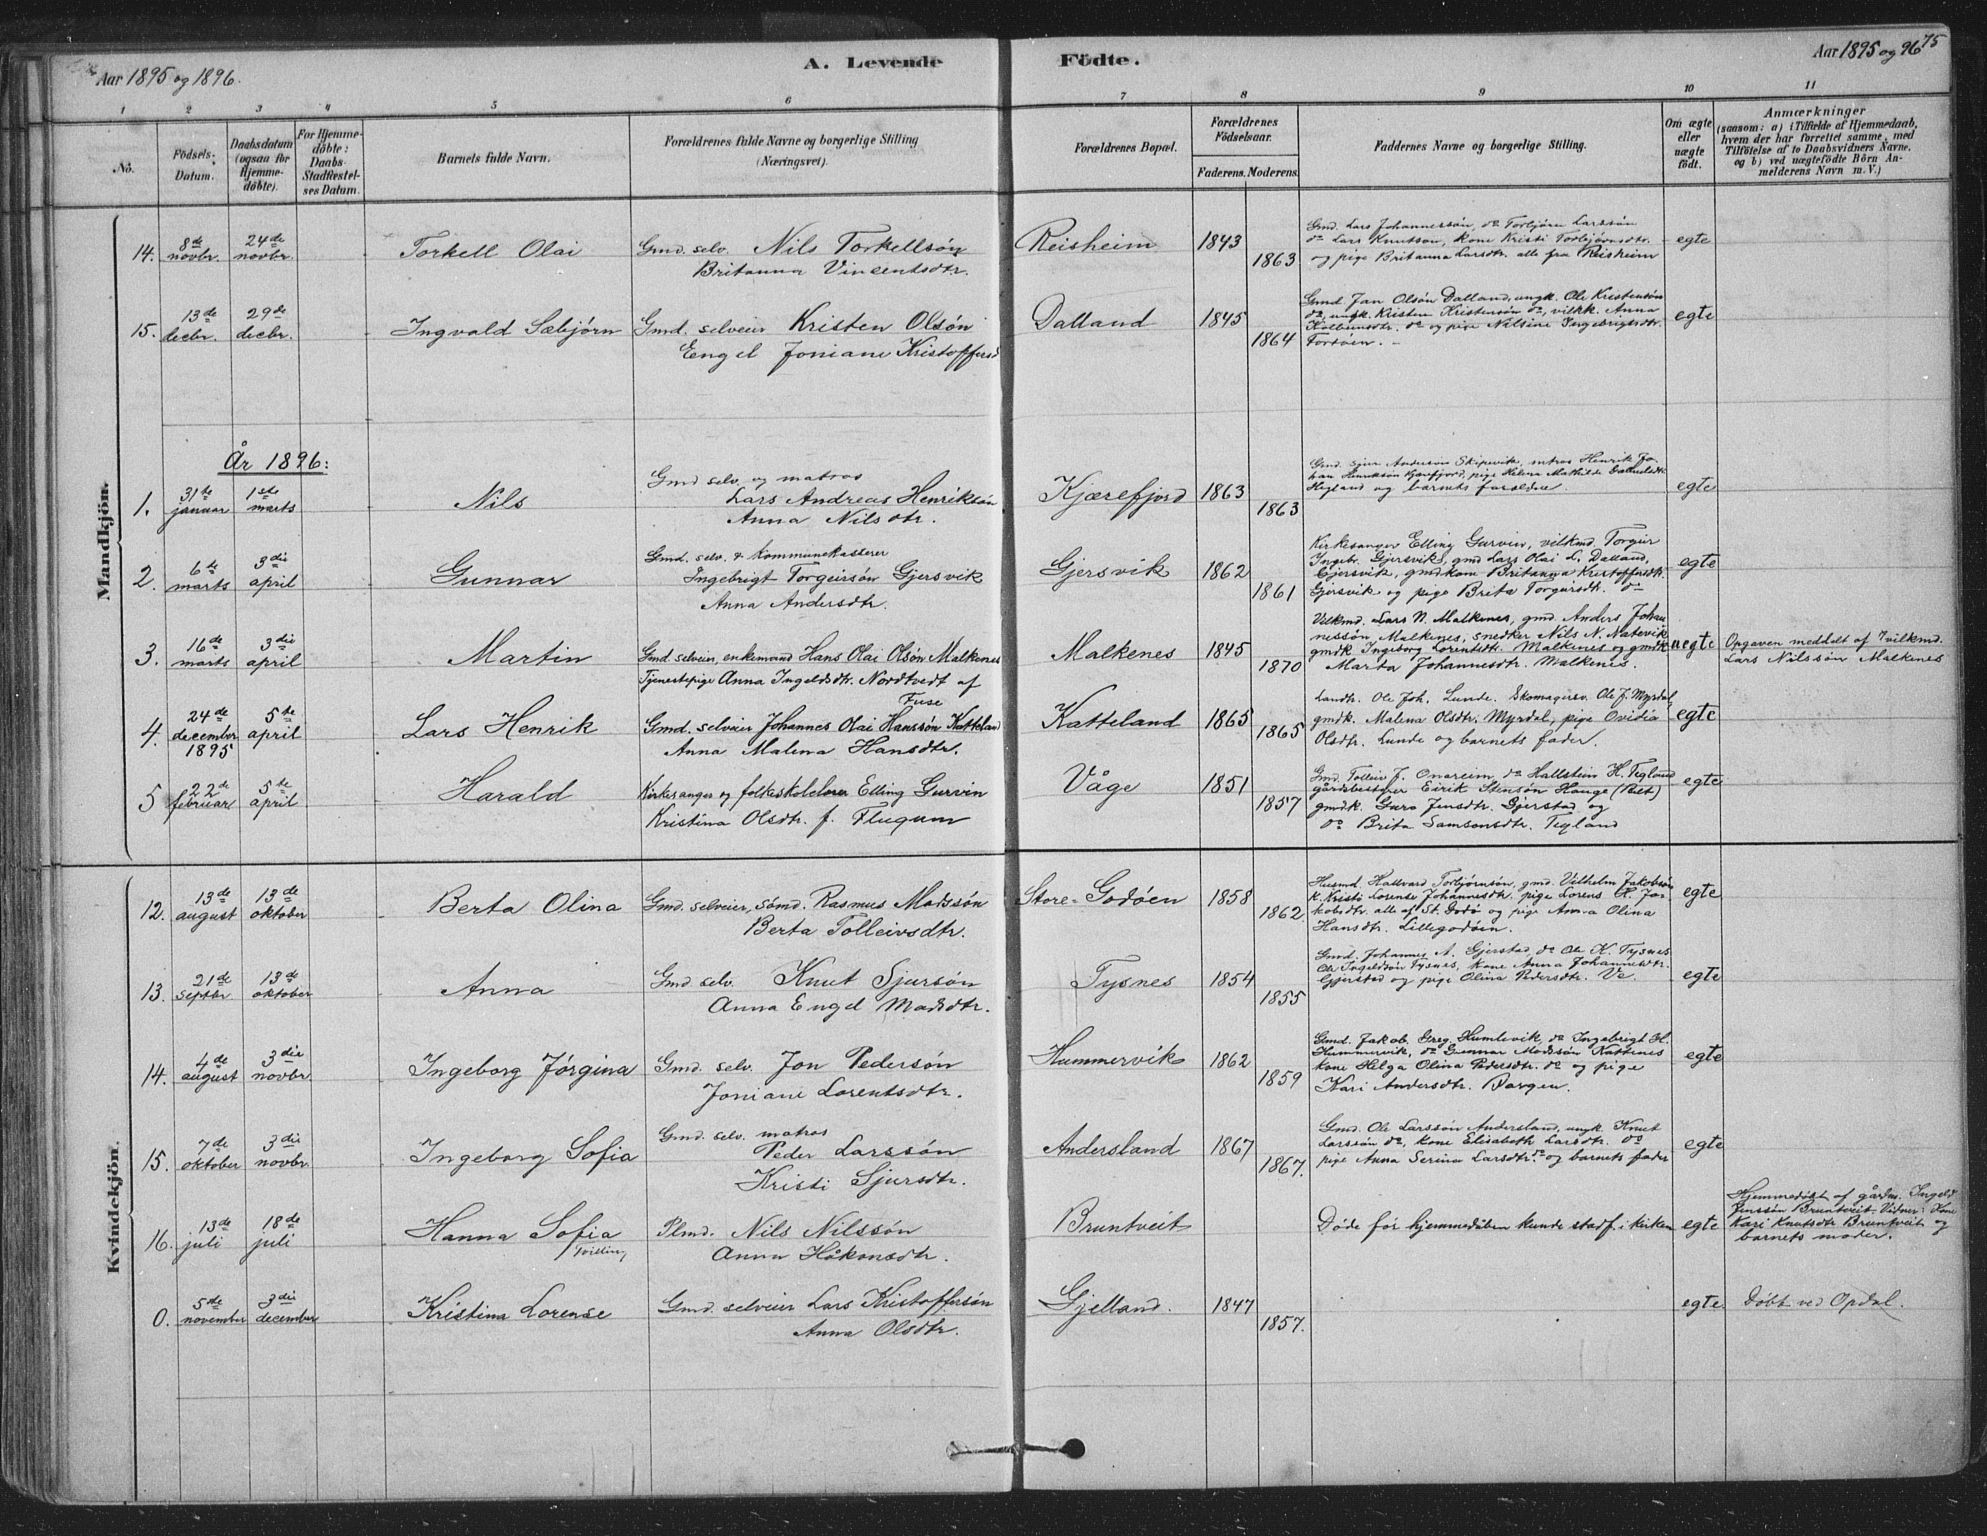 Aar 1895 og 1896.
A. Levende Födte.
Aar 1895 og 96 75
1 2 3 4 5 6 7 8 9 10 11
No.
Födsels-Datum.
Daabsdatum (ogsaa for Hjemme-döbte).
For Hjemme-döbte: Daabs-Stadfæstel-ses Datum.
Barnets fulde Navn.
Forældrenes fulde Navne og borgerlige Stilling
(Næringsvei).
Forældrenes Bopæl.
Forældrenes Födselsaar.
Faderens. Moderens.
Faddernes Navne og borgerlige Stilling.
Om ægte eller uægte födt.
Anmærkninger
(saasom: a) i Tilfælde af Hjemmedaab,
hvem der har forrettet samme, med
Tilföielse af to Daabsvidners Navne.
og b) ved uægtefödte Börn An-
melderens Navn m. V.)
Mandkjön.
14. 8de novbr. 24de novbr. Torkell Olai
Gmd selv. Nils Torkellsön
Britanna Vincentsdtr.
Reisheim 1843 1863
Gmd Lars Johannessön, do Torbjörn Larssön
do Lars Knutson, kone Kristi Torbjörnsdtr.
og pige Britanna Larsdtr. alle fra Reisheim
egte
15. 13de decbr. 29de decbr. Ingvald Sæbjörn
Gmd. selveier Kristen Olsön
Engel Joniane Kristoffersd
Dalland 1845 1864
Gmd. Jan Olsön Dalland, ungk. Ole Kristensön
do, ungk. Kristen Kristensön do, vilkk. Anna
do og pige Nilsine Ingebrigtsdtr.
egte
År 1896:
1. 31te januar 1ste marts Nils
Gmd selv. og matros
Lars Andreas Henriksön
Anna Nilsdtr.
Kjærefjord 1863 1863
Gmd. Sjur Andersön Skipevik, matros Henrik Jo-
han Henriksön Kjærefjord, pige Helena Mathilde
Hegland og barnets forældre.
egte
2. 6te marts 3die april Gunnar
Gmd. selv. & kommunekasserer
Ingebrigt Torgeirsön Gjersvik
Anna Andersdtr.
Gjersvik 1862 1861
Kirkesanger Elling Gurvin, vilkmd Torgeir
Ingebr. Gjersvik, gmd Lars Olai L. Dalland,
Gjersvik, gmdkone Britanna Kristoffersdtr.
Gjersvik og pige Brita Torgeirsdtr. do
egte
3. 16de marts 3die april Martin
Gmd selveier, enkemand Hans Olai Olsön Malkenes
Tjenestepige Anna Ingeldsdtr. Nordtvedt af
Fuse
Malkenes 1845 1870
Vilkmd. Lars N. Malkenes, gmd Anders Johan
nessön, Malkenes, snedker Nils N. Natevik
gmdk Ingeborg Lorentsdtr. Malkenes og gmdk
Marta Johannesdtr. Malkenes.
uegte
Opgaven meddelt af vilkmd.
Lars Nilssön Malkenes
4. 24de december 1895 5te april Lars Henrik
Gmd. selveier Johannes Olai Hanssön Katteland
Anna Malena Hansdtr.
Katteland 1865 1865
Landh. Ole Joh. Lunde. Skomagersv. Ole J. Myrdal,
gmdk. Malena Olsdtr. Myrdal, pige Ovidia
Olsdtr. Lunde og barnets fader.
egte
5 22de februar 5te april Harald
Kirkesanger og folkeskolelærer Elling Gurvin
Kristina Olsdtr. f. Flugum
Våge 1851 1857
Gmd Tolleiv J. Onareim, do Hallstein H. Tegland
gårdsbestyrer Eirik Stensön Hauge (Præst)
gmdk. Guro Jensdtr. Gjerstad og
do Brita Samsonsdtr. Tegland
egte
Kvindekjön.
12. 13de august 13de oktober Berta Olina
Gmd. selveier, sömd. Rasmus Madssön
Berta Tolleivsdtr.
Store-Godöen 1858 1862.
Husmd. Hallvard Torbjörnsön, gmd. Vilhelm Jakobsön
k. Kristi Lorense Johannesdtr. pige Lorens R. Ja-
kobsdtr. alle af St. Godö og pige Anna Olina
Hansdtr. Lillegodöen.
egte
13. 21de septbr 13de oktober Anna
Gmd selv. Knut Sjursön
Anna Engel Madsdtr.
Tysnes 1854 1855
Gmd. Johannes A. Gjerstad, do Ole K. Tysnes
Ole Ingeldsön Tysnes, kone Anna Johannesdtr.
Gjerstad og pige Olina Pedersdtr. Ve
egte
14. 4de august 3die novbr Ingeborg Jörgina
Gmd. selv. Jon Pedersön
Joniane Lorentsdtr.
Hummervik 1862 1859
Gmd. Jakob Greg. Humlevik, do Ingebrigt H.
Hummervik, do Gunnar Madssön Kattenes
kone Helga Olina Pedersdtr. do og pige
Kari Andersdtr. Borgen.
egte
15. 7de oktober 3die novbr. Ingeborg Sofia
Gmd. selv. matros
Peder Larssön
Kristi Sjursdtr.
Andersland 1867 1867.
Gmd. Ole Larssön Andersland, ungk. Knut
Larssön do, kone Elisabeth Larsdtr. do
pige Anna Serina Larsdtr. do og barnets fader
egte
16. 13de juli 18de juli Hanna Sofia
Tvilling
Plmd. Nils Nilssön
Anna Håkonsdtr.
Bruntveit
Döde för hjemmedåben kunde stadf. i kirken
egte
Hjemmedöbt af gårdm. Ingeld
Jenssön Bruntveit. Vidner: Kone
Kari Knutsdtr Bruntveit og
barnets moder.
0. 5te november 3die december Kristina Lorense
Gmd. selveier Lars Kristoffersön
Anna Olsdtr.
Gjelland. 1847 1857.
egte. Döbt ved Opdal.